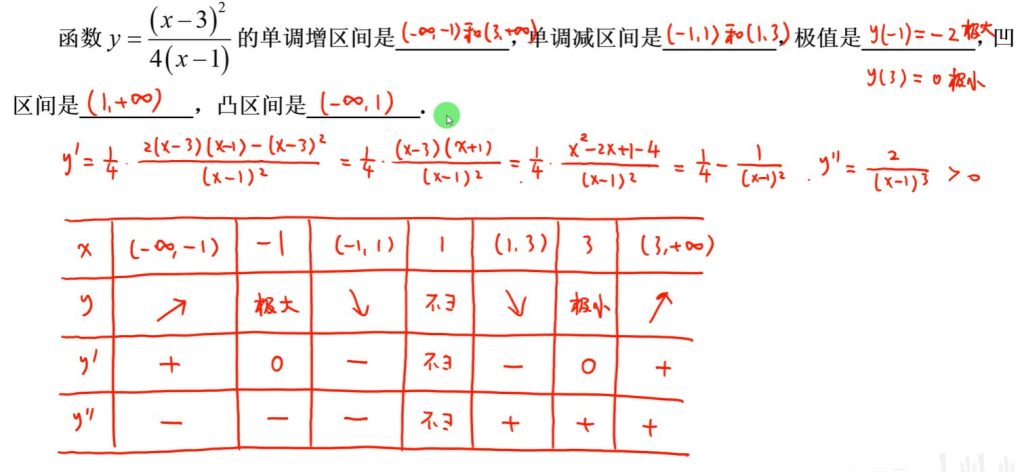 函数 y = (x-3)²/4(x-1) 的单调增区间是 (-∞,-1)和(3,+∞), 单调减区间是 (-1,1) 和 (1,3), 极值是 y(-1)=-2 极大, 凹
y(3)=0 极小
区间是 (1,+∞) , 凸区间是 (-∞,1) .
y' = 1/4 · 2(x-3)(x-1)-(x-3)²/(x-1)² = 1/4 · (x-3)(x+1)/(x-1)² = 1/4 · x²-2x+1-4/(x-1)² = 1/4 - 1/(x-1)² . y'' = 2/(x-1)³ > 0
x (-∞,-1) -1 (-1,1) 1 (1,3) 3 (3,+∞)
y ↗ 极大 ↓ 不∃ ↘ 极小 ↗
y' + 0 - 不∃ - 0 +
y'' - - - 不∃ + + +